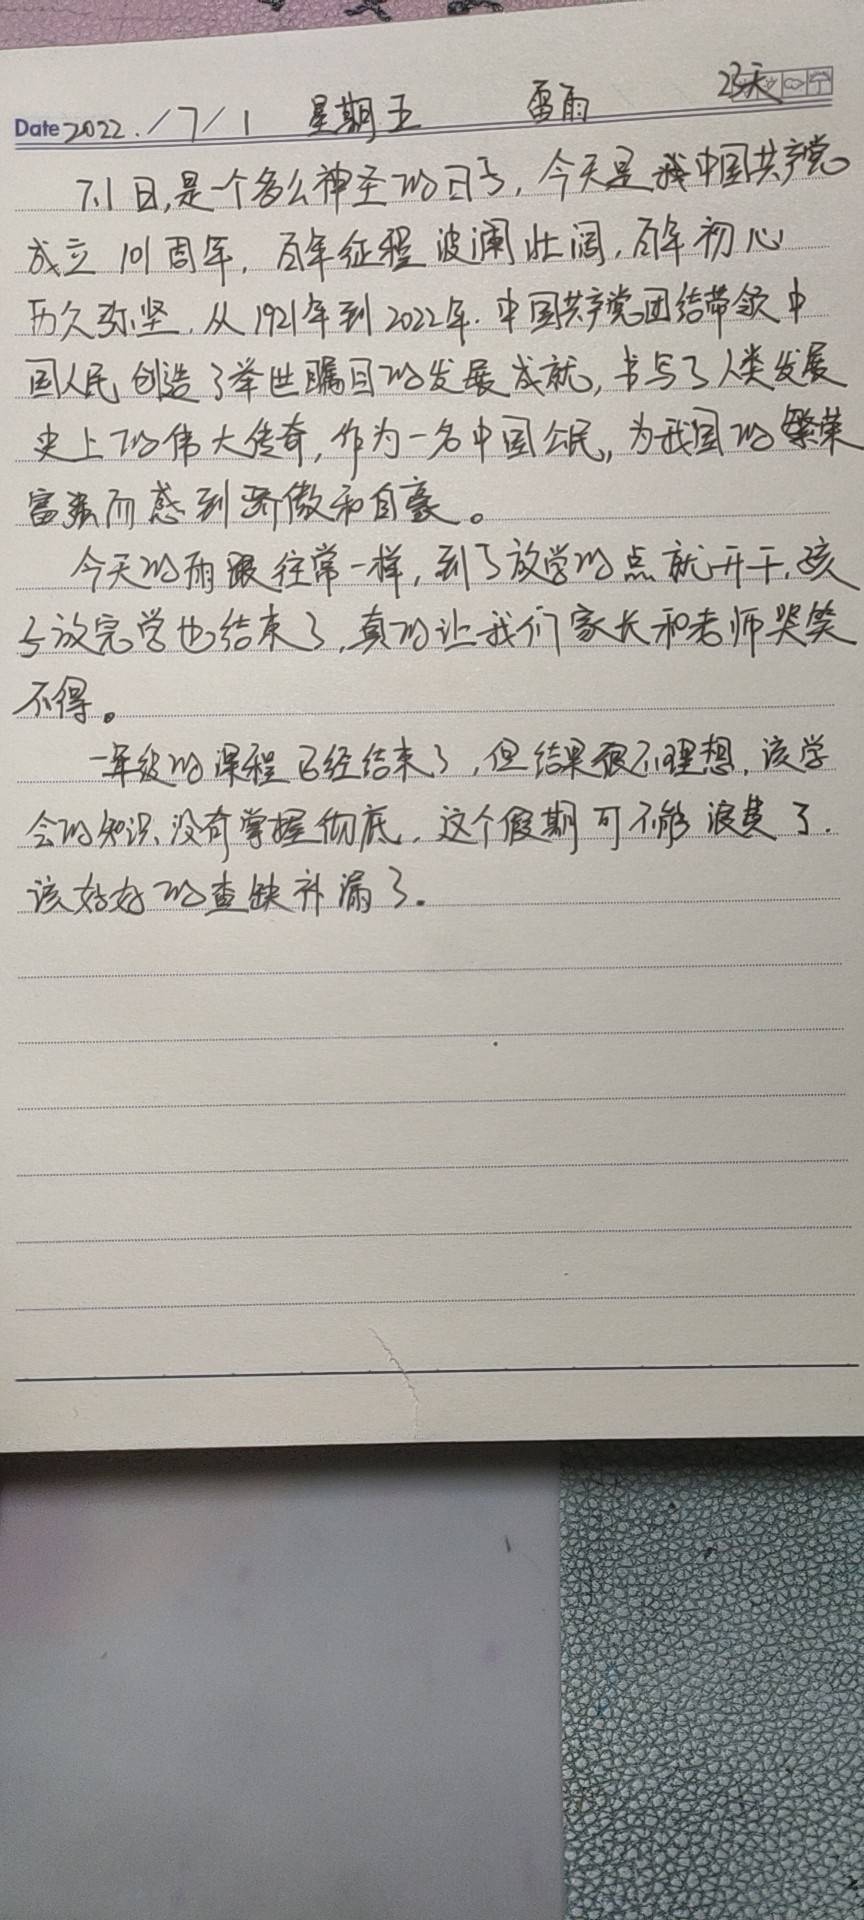 Date 2022./7/1 星期五 雷雨 23天
7.1日,是一个多么神圣的日子,今天是我中国共产党
成立101周年,百年征程波澜壮阔,百年初心
历久弥坚,从1921年到2022年.中国共产党团结带领中
国人民创造了举世瞩目的发展成就,书写了人类发展
史上的伟大传奇,作为一名中国公民,为我国的繁荣
富强而感到骄傲和自豪。
今天的雨跟往常一样,到了放学的点就开干,孩
子放完学也结束了,真的让我们家长和老师哭笑
不得。
一年级的课程已经结束了,但结果很不理想,该学
会的知识、没有掌握彻底,这个假期可不能浪费了.
该好好的查缺补漏了.